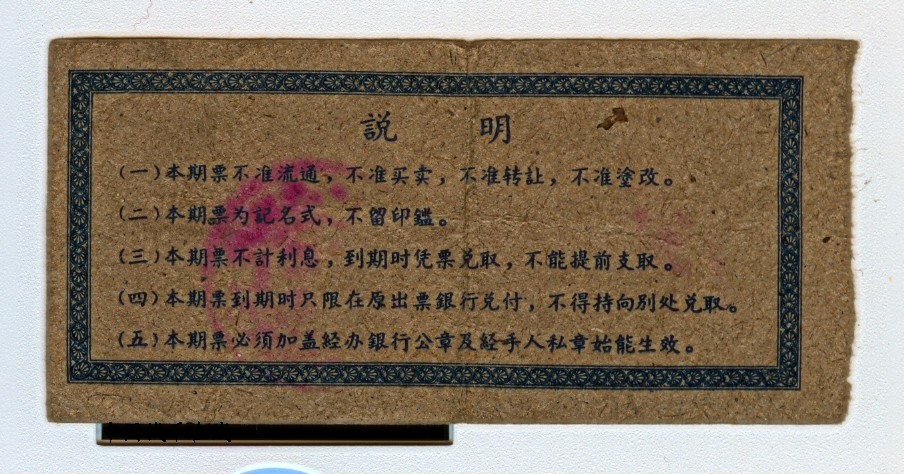 説 明
(一)本期票不准流通,不准买卖,不准转訨,不准塗改。
(二)本期票为記名式,不留印鑑。
(三)本期票不計利息,到期时凭票兑取,不能提前支取。
(四)本期票到期时只限在原出票銀行兑付,不得持向別处兑取。
(五)本期票必须加盖経办銀行公章及経手人私章始能生效。